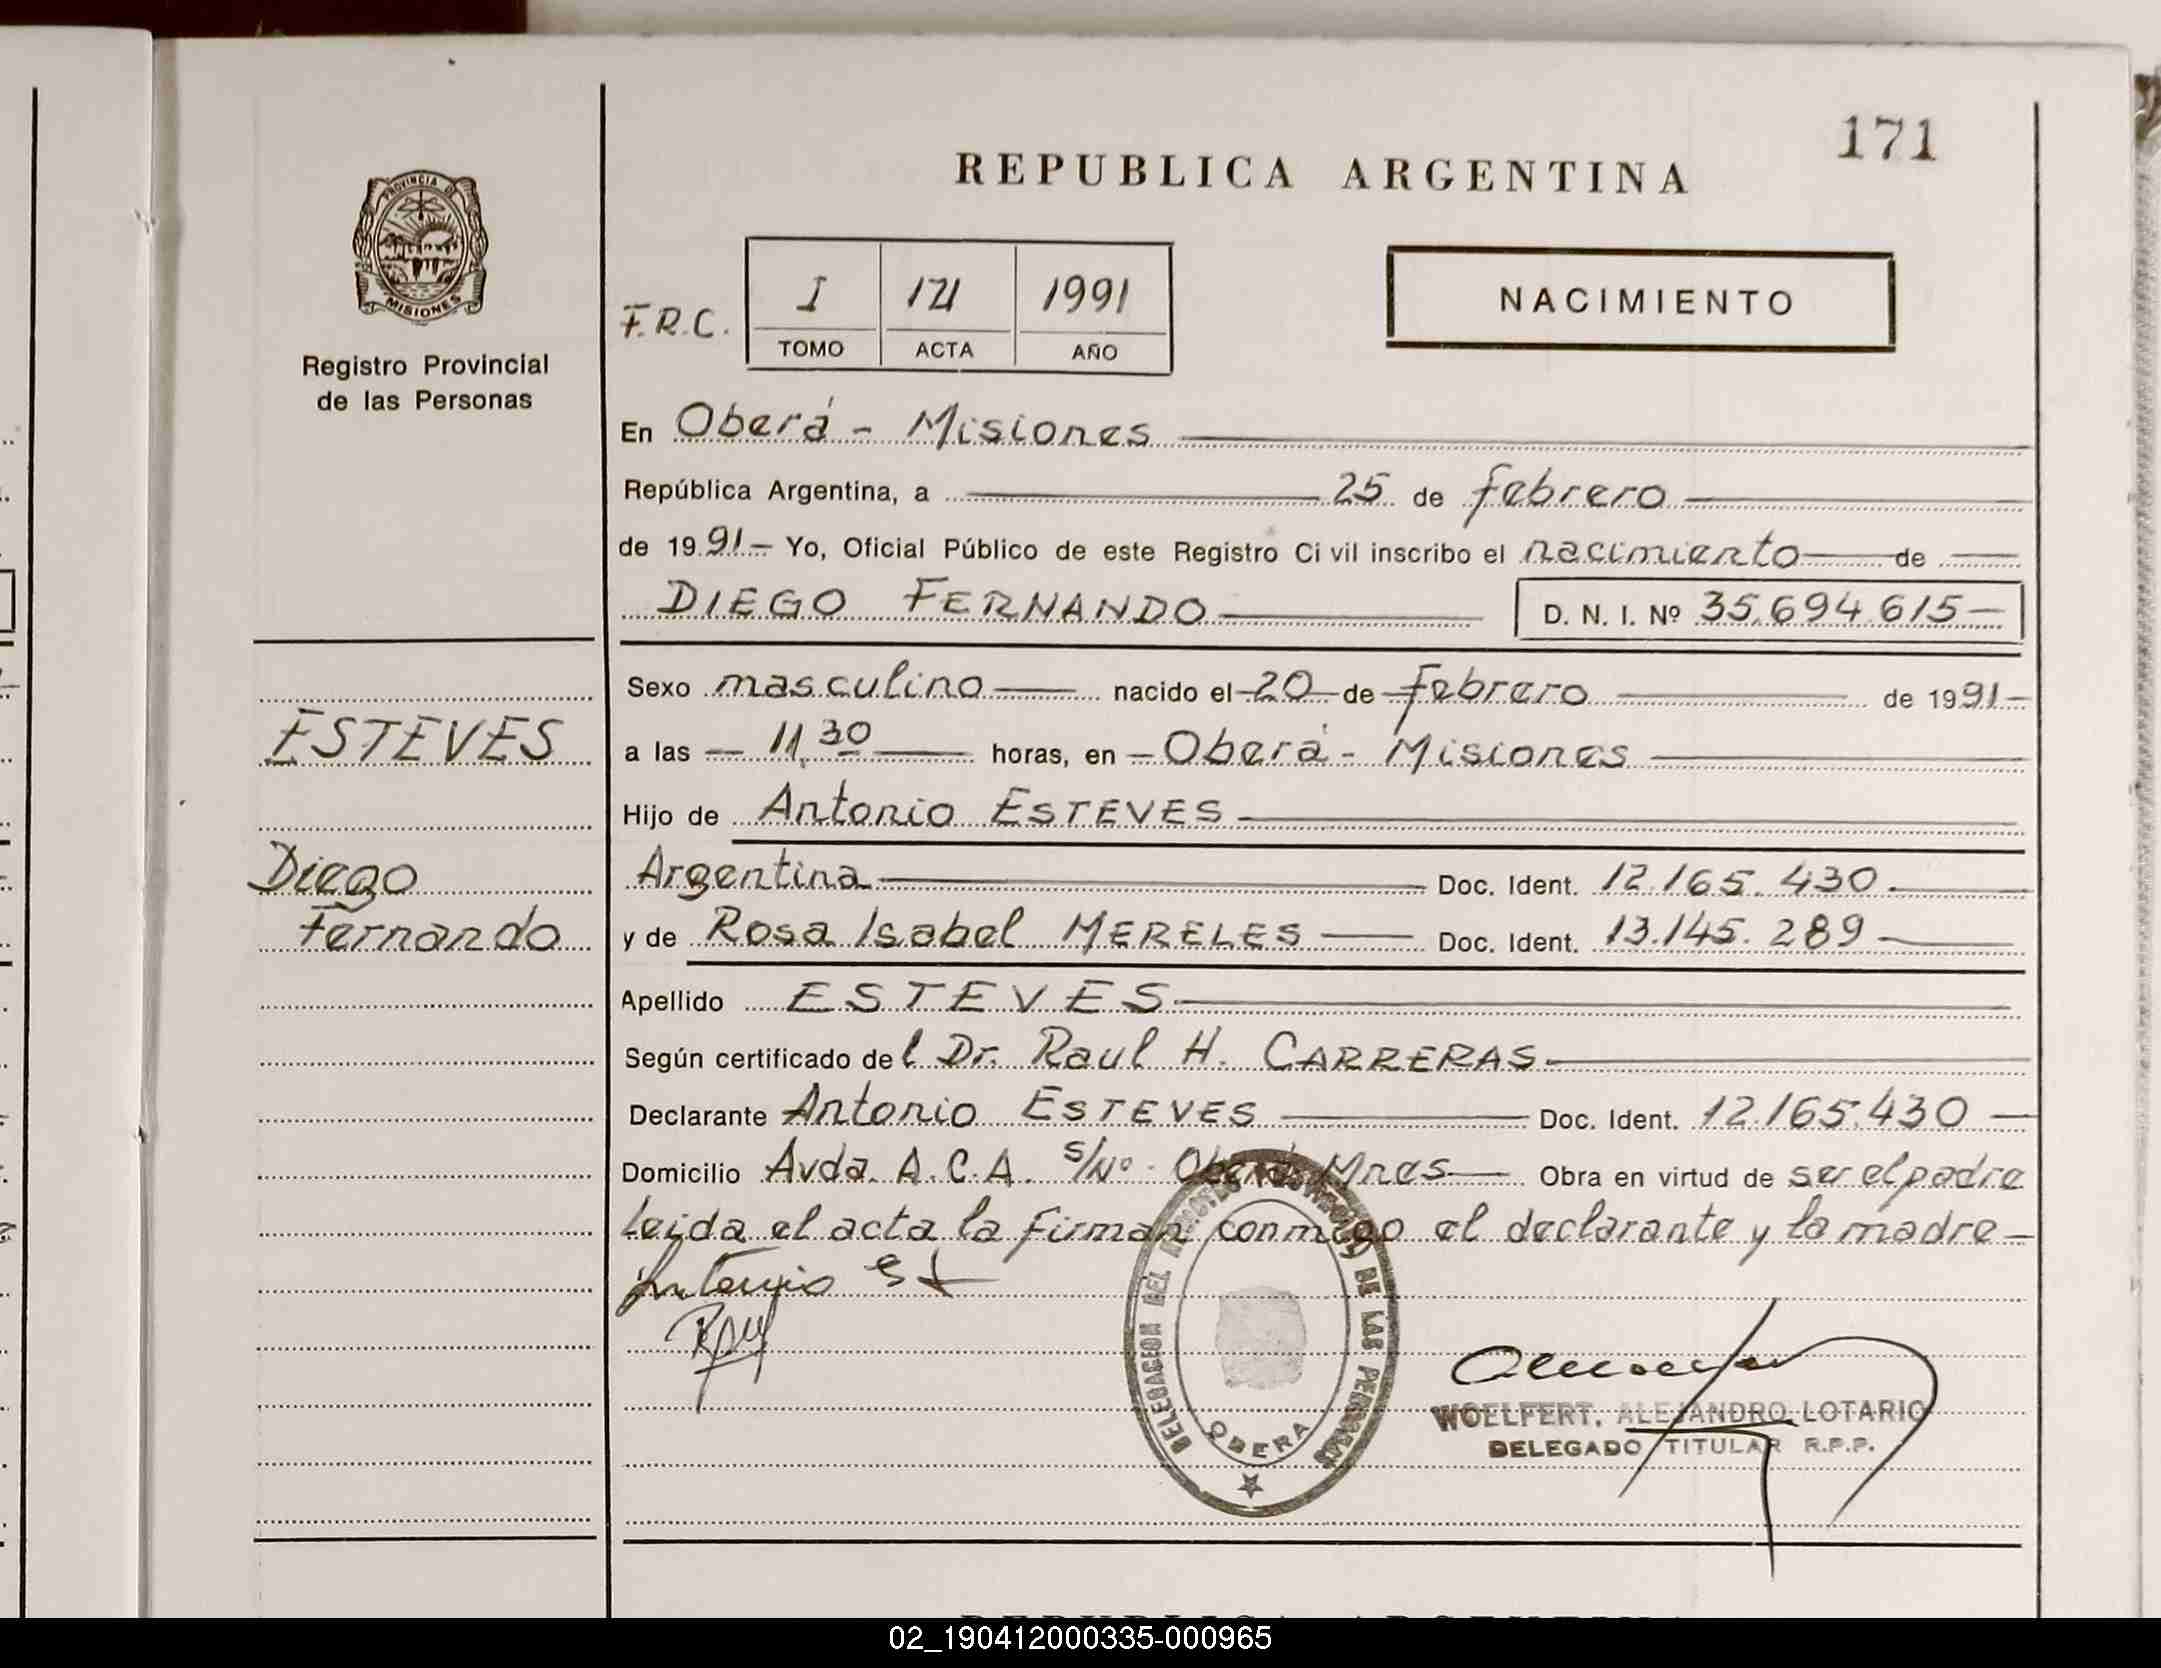 171
REPUBLICA ARGENTINA
PROVINCIA DE
MISIONES
Registro Provincial
de las Personas
F.R.C.
I 171 1991
TOMO ACTA AÑO
NACIMIENTO
En Oberá - Misiones
República Argentina, a 25 de febrero
de 1991- Yo, Oficial Público de este Registro Ci vil inscribo el nacimiento de
DIEGO FERNANDO D. N. I. Nº 35.694.615-
ESTEVES
Diego
Fernando
Sexo masculino nacido el 20 de febrero de 1991-
a las 11,30 horas, en Oberá - Misiones
Hijo de Antonio ESTEVES
Argentina Doc. Ident. 12.165.430
y de Rosa Isabel MERELES Doc. Ident. 13.145.289
Apellido ESTEVES
Según certificado del Dr. Raul H. CARRERAS
Declarante Antonio ESTEVES Doc. Ident. 12.165.430
Domicilio Avda. A.C.A. s/Nº. Oberá Mnes Obra en virtud de ser el padre
Leida el acta la firman conmigo el declarante y la madre-
Antonio Est
DELEGACION DEL REGISTRO DE LAS PERSONAS
OBERA
WOELFERT, ALEJANDRO LOTARIO
DELEGADO TITULAR R.P.P.
02_190412000335-000965